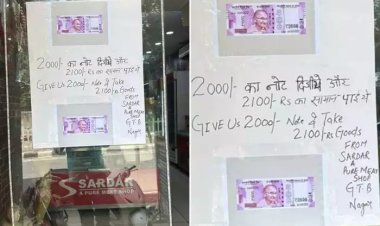 2000/- का नोट दिजीये और
2100/- Rs का सामान पाइये
GIVE US 2000/- Note & Take
2100/- Rs Goods
FROM
SARDAR
A
PURE MEAT
SHOP
G.T.B
Nagar
SARDAR
A PURE MEAT SHOP
2000/- का नोट दिजीये और
2100/- Rs का सामान पाइये
GIVE US 2000/- Note & Take
2100/- Rs Goods
FROM
SARDAR
A
PURE MEAT
SHOP
G.T.B
Nagar